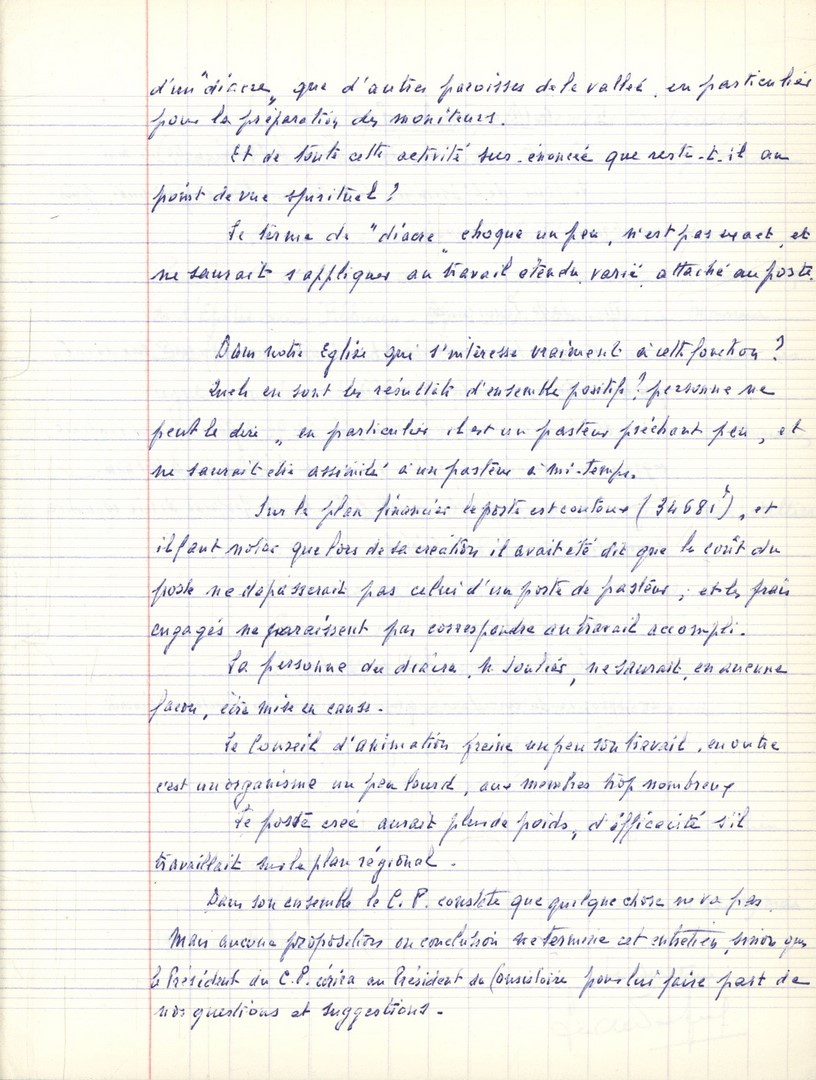 d'un "diacre" que d'autres paroisses de la vallée, en particulier
pour la préparation des moniteurs.
Et de toute cette activité sus-énoncée que reste-t-il au
point de vue spirituel ?
Le terme de "diacre" choque un peu, n'est pas exact, et
ne saurait s'appliquer au travail étendu, varié, attaché au poste.
Dans notre Eglise qui s'intéresse vraiment à cette fonction ?
Quels en sont les résultats d'ensemble positifs ? personne ne
peut le dire, en particulier il est un pasteur prêchant peu, et
ne saurait être assimilé à un pasteur à mi-temps.
Sur le plan financier le poste est couteux (34681F), et
il faut noter que lors de sa création il avait été dit que le coût du
poste ne dépasserait pas celui d'un poste de pasteur ; et les frais
engagés ne paraissent pas correspondre au travail accompli.
La personne du diacre, M. Soulier, ne saurait, en aucune
façon, être mise en cause.
Le Conseil d'animation freine un peu son travail, en outre
c'est un organisme un peu lourd, aux membres trop nombreux
Le poste créé aurait plus de poids, d'efficacité s'il
travaillait sur le plan régional.
Dans son ensemble le C.P. constate que quelque chose ne va pas
Mais aucune proposition ou conclusion ne termine cet entretien, sinon que
le Président du C.P. écrira au Président du Consistoire pour lui faire part de
nos questions et suggestions.